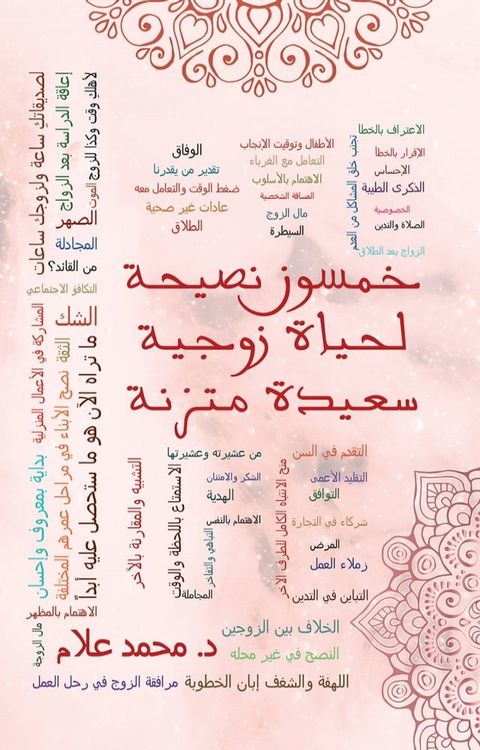 الاعتراف بالخطأ
الإقرار بالخطأ
الإحساس
الذكرى الطيبة
الخصوصية
الصلاة والتدين
الزواج بعد الطلاق
تجنب خلق المشاكل من العدم
الأطفال وتوقيت الإنجاب
التعامل مع الغرباء
الاهتمام بالأسلوب
المسافة الشخصية
مال الزوج
السيطرة
الوفاق
تقدير من يقدرنا
ضغط الوقت والتعامل معه
عادات غير صحية
الطلاق
لأهلك وقت وكذا للزوج
الموت
إعاقة الدراسة بعد الزواج
لصديقاتك ساعة ولزوجك ساعات
الصهر
المجادلة
من القائد؟
التكافؤ الاجتماعي
الشك
خمسون نصيحة
لحياة زوجية
سعيدة متزنة
ما تراه الآن هو ما ستحصل عليه أبداً
الثقة
نصح الأبناء في مراحل عمرهم المختلفة
المشاركة في الأعمال المنزلية
بداية بمعروف وإحسان
الاهتمام بالمظهر
مال الزوجة
التقدم في السن
التقليد الأعمى
التوافق
شركاء في التجارة
المرض
زملاء العمل
التباين في التدين
منح الانتباه الكامل للطرف الآخر
من عشيرته وعشيرتها
الشكر والامتنان
الهدية
الاهتمام بالنفس
التباهي والتفاخر
الاستمتاع باللحظة والوقت
المجاملة
التشبيه والمقارنة بالآخر
الخلاف بين الزوجين
النصح في غير محله
د. محمد علام
اللهفة والشغف إبان الخطوبة
مرافقة الزوج في رحل العمل